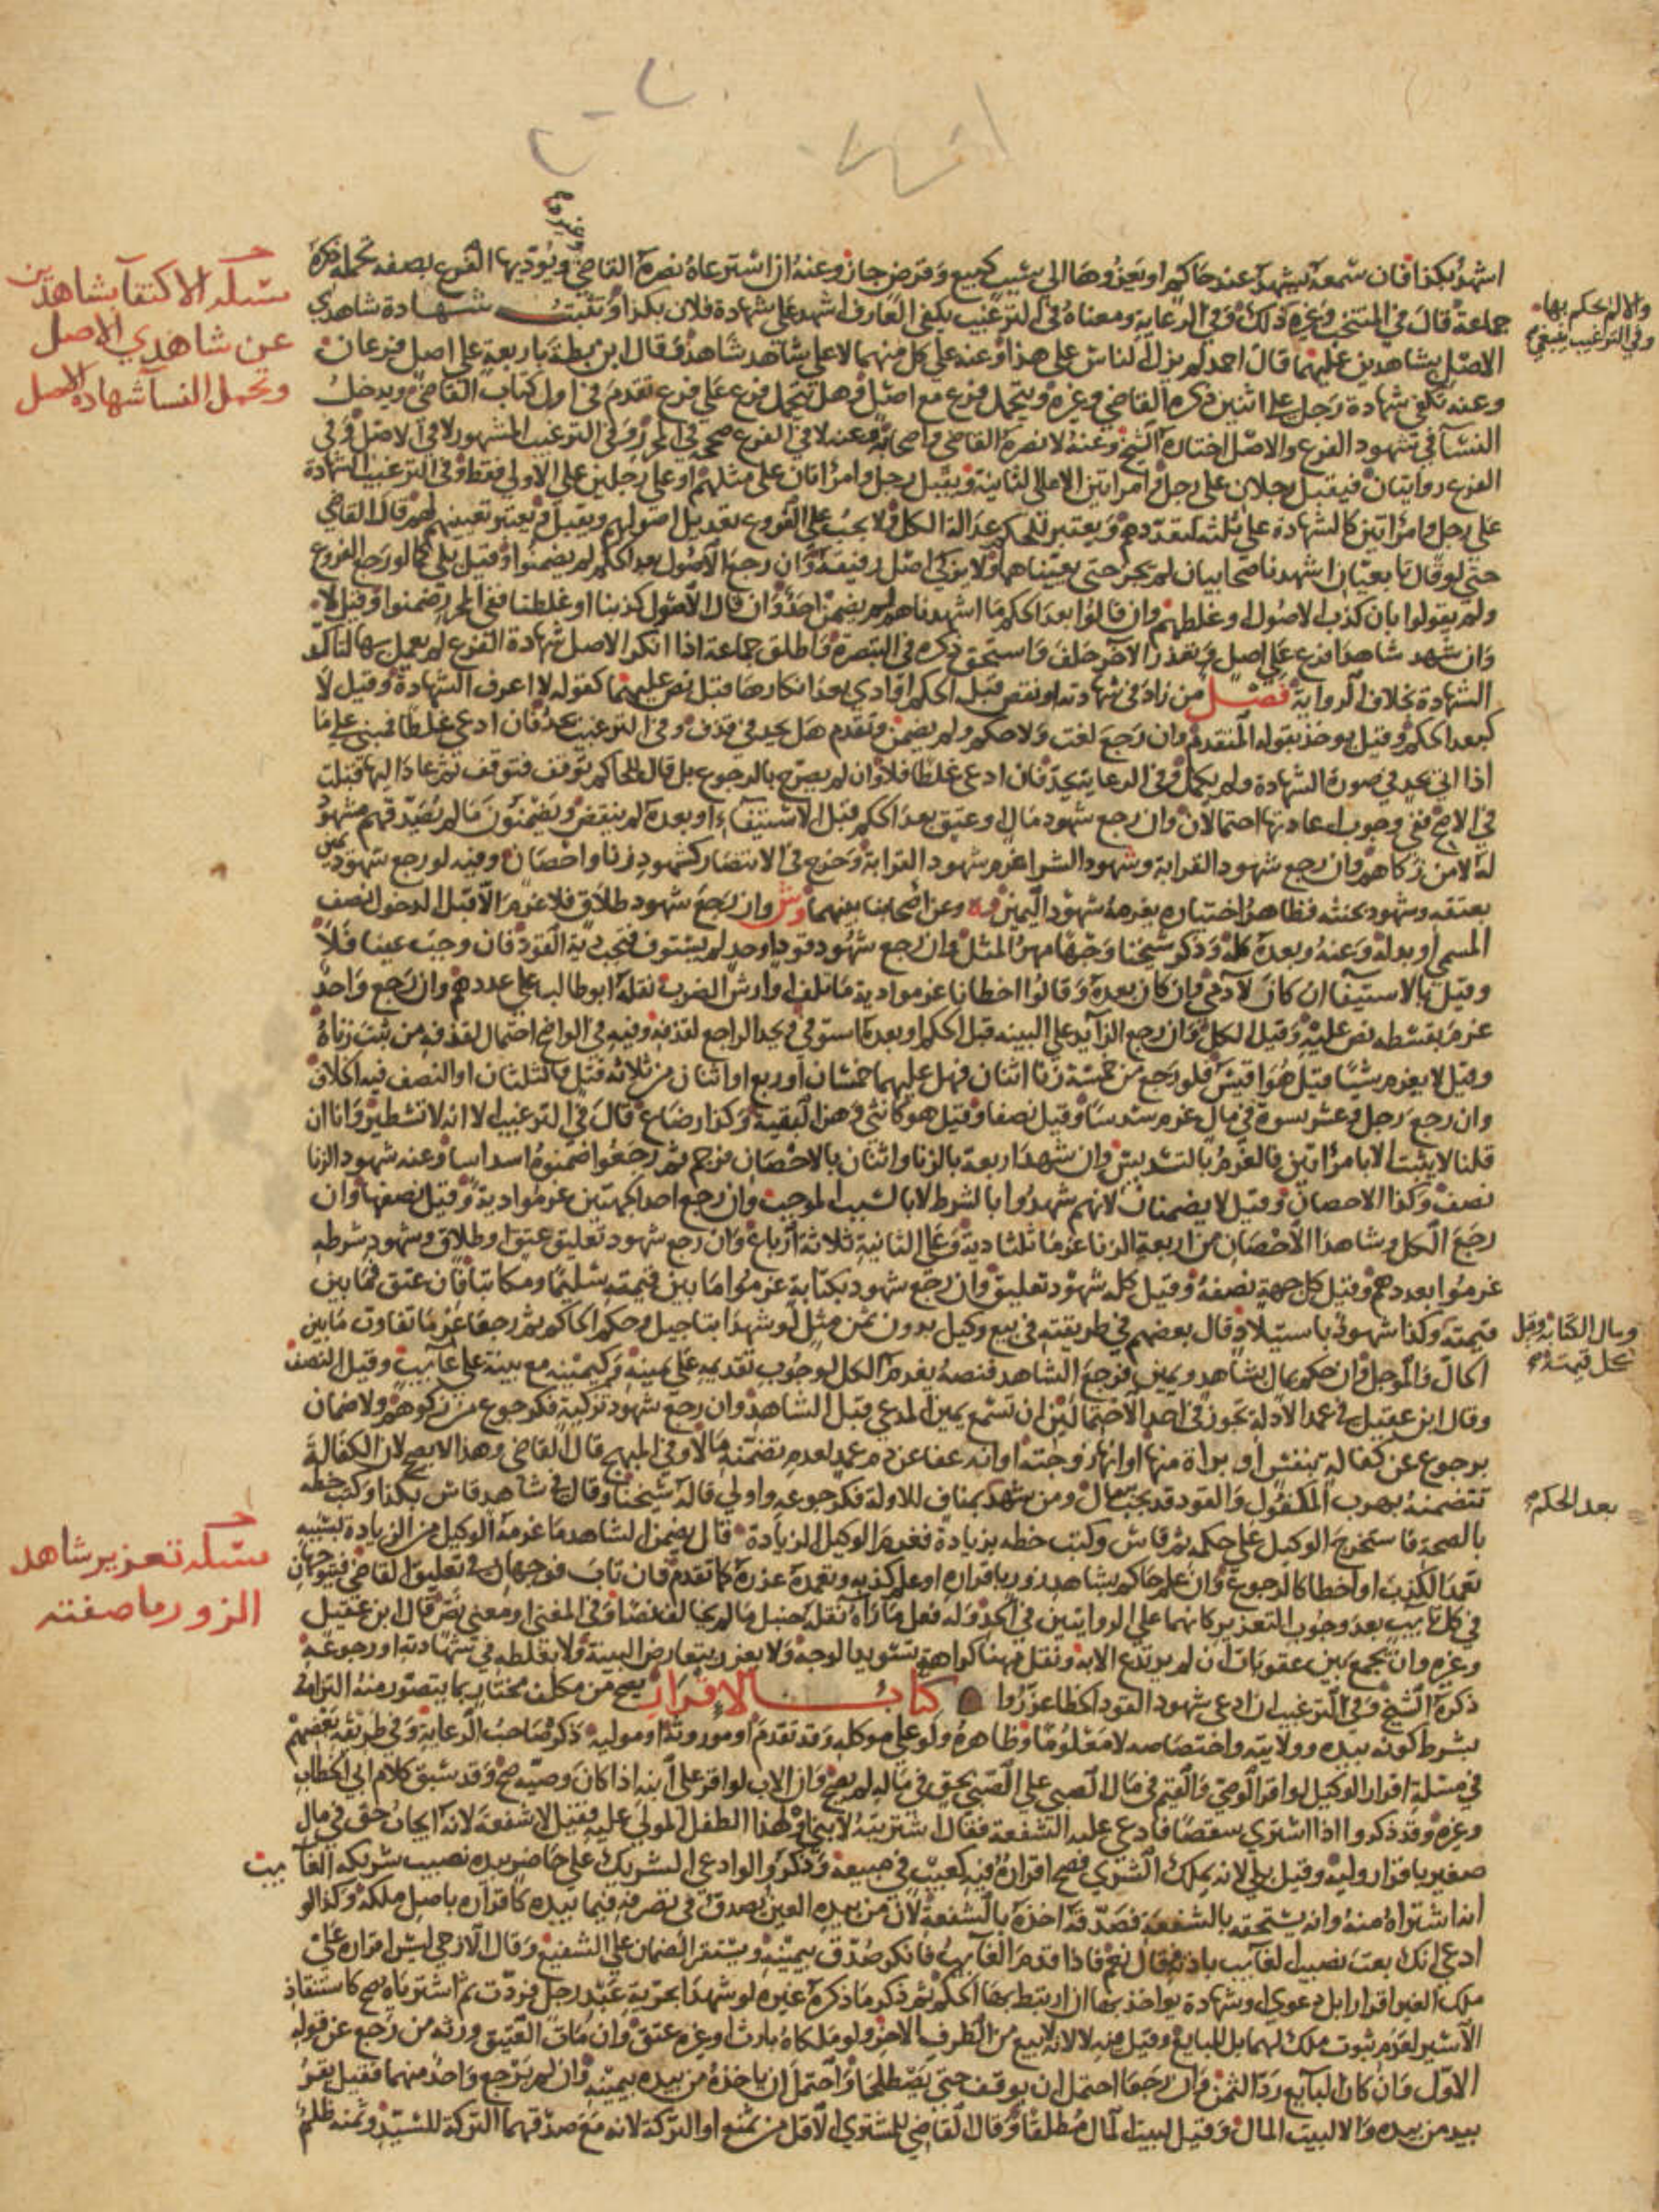 اشهد بكذا فان سمعه يشهد عند حاكم او يعزوها الى سبب كبيع وقرض جاز وعنه ان استرعاه نصره القاضي ويؤديها الفرع بصفة تحمله ذكره
جماعة قال في المنتخب وغيره ذلك وفي الرعاية ومعناه في الترغيب يكفي العارف اشهد على شهادة فلان بكذا وتثبت شهادة شاهدي
الاصل بشاهدين عليهما قال احمد لم يزل الناس على هذا وعنه على كل منهما لا على شاهد شاهد وقال ابن بطة باربعة على اصل فرعان
وعنه تكفي شهادة رجل على اثنين ذكره القاضي وغيره ويتحمل فرع مع اصل وهل يتحمل فرع على فرع تقدم في اول كتاب القاضي ويدخل
النسا في شهود الفرع والاصل اختاره الشيخ وعنه لا نصره القاضي واصحابه وعنه لا في الفرع صححه في المحرر وفي الترغيب المشهور لا في الاصل وفي
الفرع روايتان فيقبل رجلان على رجل وامراتين الا على الثانية ويقبل رجل وامراتان على مثلهم او على رجلين على الاولى فقط وفي الترغيب الشهادة
على رجل وامراتين كالشهادة على ثلثة لتعددهم ويعتبر للحكم عدالة الكل ولا يجب على الفروع تعديل اصولهم ويقبل ويعتبر تعيينهم لهم قال القاضي
حتى لو قال تابعيان اشهدنا صحابيان لم يجز حتى يعيناهما ولا يزكي اصل رفيقه وان رجع الاصول بعد الحكم لم يضمنوا وقيل بلى كما لو رجع الفروع
ولم يقولوا بان كذب الاصول او غلطهم وان قالوا بعد الحكم ما اشهدناهم لم يضمن احد وان قال الاصول كذبنا او غلطنا ففي المحرر ضمنوا وقيل لا
وان شهد شاهدا فرع على اصل وتعذر الاخر حلف واستحق ذكره في التبصرة واطلق جماعة اذا انكر الاصل شهادة الفرع لم يعمل بها لتاكد
الشهادة بخلاف الرواية فصل من زاد في شهادته او نقص قبل الحكم او ادى بعد انكارها قبل نص عليهما كقوله لا اعرف الشهادة وقيل لا
كبعد الحكم وقيل يوخذ بقوله المتقدم وان رجع لغت ولا حكم ولم يضمن وتقدم هل يحد في قذف وفي الترغيب يحد فان ادعى غلطا فمبني على ما
اذا اتى بحد في صورة الشهادة ولم يكمل وفي الرعاية يحد فان ادعى غلطا فلا وان لم يصرح بالرجوع بل قال للحاكم توقف فتوقف ثم عاد اليها قبلت
في الاصح ففي وجوب اعادتها احتمالان وان رجع شهود مال او عتق بعد الحكم قبل الاستيفاء او بعده لم ينقض ويضمنون ما لم يصدقهم مشهود
له لا من زكاهم وان رجع شهود القرابة وشهود الشرا غرم شهود القرابة وخرج في الانتصار كشهود زنا واحصان وفيه لو رجع شهود يمين
بعتقه وشهود بحنثه فظاهر اختياره يغرمه شهود اليمين وعن اصحابنا بينهما وش وان رجع شهود طلاق فلا غرم الا قبل الدخول نصف
المسمى او بدله وعنه وبعده كله وذكر شيخنا وجها مهر المثل وان رجع شهود قود او حد لم يستوف فتجب دية القود فان وجب عينا فلا
وقيل بالاستيفا ان كان لادمي وان كان بعده وقالوا اخطانا غرموا دية ما تلف او ارش الضرب نقله ابو طالب على عددهم وان رجع واحد
غرم بقسطه نص عليه وقيل الكل وان رجع الزايد على البينة قبل الحكم او بعده استوفي ويحد الراجع لقذفه وفيه في الواضح احتمال لقذفه من ثبت زناه
وقيل لا يغرم شيئا قيل هو اقيس فلو رجع من خمسة زنا اثنان فهل عليهما خمسان او ربع او اثنان من ثلاثة قتل فالثلثان او النصف فيه الخلاف
وان رجع رجل وعشر نسوة في مال غرم سدسا وقيل نصفا وقيل هو كانثى وهن البقية وكذا رضاع قال في الترغيب الا انه لا تشطير واناان
قلنا لا يثبت الا بامراتين فالغرم بالتسديس وان شهد اربعة بالزنا واثنان بالاحصان فرجم ثم رجعوا ضمنوه اسداسا وعنه شهود الزنا
نصف وكذا الاحصان وقيل لا يضمنان لانهم شهدوا بالشرط لا بالسبب الموجب وان رجع احد الجهتين غرموا دية وقيل نصفها وان
رجع الكل وشاهدا الاحصان من اربعة الزنا غرما ثلثا دية وعلى الثانية ثلاثة ارباع وان رجع شهود تعليق عتق او طلاق وشهود شرطه
غرموا بعددهم وقيل كل جهة نصفه وقيل كله شهود تعليق وان رجع شهود بكتابة غرموا ما بين قيمته سليما ومكاتبا فان عتق فما بين
قيمته وكذا شهود باستيلاد وقال بعضهم في طريقته في بيع وكيل بدون ثمن مثل لو شهدا بتاجيل وحكم الحاكم ثم رجعا غرما تفاوت ما بين
الحال والموجل وان حكم بمال بشاهد ويمين فرجع الشاهد فنصه يغرم الكل لوجوب تقديمه على يمينه وكيمينه مع بينة على غايب وقيل النصف
وقال ابن عقيل في عمد الادلة تجوز في احد الاحتمالين ان تسمع يمين المدعي قبل الشاهد وان رجع شهود تزكية فكرجوع من زكوهم ولا ضمان
برجوع عن كفالة بنفس او براة منها او انها زوجته او انه عفا عن دم عمد لعدم تضمنه مالا وفي المبهج قال القاضي وهذا لا يصح لان الكفالة
تتضمنه بهرب المكفول والقود قد يجب به مال ومن شهد بمناف للاولة فكرجوعه واولى قاله شيخنا وقال في شاهد قاس بكذا وكتب خطه
بالصحة فاستخرج الوكيل على حكمه ثم قاس وكتب خطه بزيادة فغرم الوكيل الزيادة قال يضمن الشاهد ما غرمه الوكيل من الزيادة بسببه
تعمد الكذب او اخطا كالرجوع وان علم حاكم بشاهد زور باقراره او علم كذبه وتعمده عزره كما تقدم فان تاب فوجهان في تعليق القاضي فيتوجهان
في كل تايب بعد وجوب التعزير وكانهما على الروايتين في الحد وله فعل ما رآه نقله حنبل ما لم يخالف نصا وفي المغني او معنى نص قال ابن عقيل
وغيره وان يجمع بين عقوبات ان لم يرتدع الا به ونقل مهنا كراهة تسويد الوجه ولا يعزر بتعارض البينة ولا بغلطه في شهادته او رجوعه
ذكره الشيخ وفي الترغيب ان ادعى شهود القود الخطا عزروا كتاب الاقرار يصح من مكلف مختار بما يتصور منه التزامه
بشرط كونه بيده وولايته واختصاصه لا معلوما وظاهره ولو على موكله وقد تقدم او موروثه او موليه ذكره صاحب الرعاية وفي طريقة بعضهم
في مسلة اقرار الوكيل لو اقر الوصي والقيم في مال الصبي على الصبي بحق في ماله لم يصح وان الاب لو اقر على ابنه اذا كان وصيه صح وقد سبق كلام ابي الخطاب
وغيره وقد ذكروا اذا اشترى شقصا فادعي عليه الشفعة فقال اشتريته لابني او لهذا الطفل المولى عليه فقيل لا شفعة لانه ايجاب حق في مال
صغير باقرار وليه وقيل بلى لانه يملك الشرى فصح اقراره فيه كعيب في مبيعه وذكروا لو ادعى الشريك على حاضر بيده نصيب شريكه الغايب
انه اشتراه منه وانه يستحقه بالشفعة فصدقه اخذه بالشفعة لان من بيده العين يصدق في تصرفه فيما بيده كاقراره باصل ملكه وكذا لو
ادعى انك بعت نصيب الغايب باذنه فقال نعم فاذا قدم الغايب فانكر صدق بيمينه ويستقر الضمان على الشفيع وقال الازجي ليس اقراره على
ملك الغير اقرارا بل دعوى او شهادة يواخذ بها ان ارتبط بها الحكم ثم ذكر ما ذكره غيره لو شهدا بحرية عبد رجل فردت ثم اشترياه صح كاستنقاذ
الاسير لعدم ثبوت ملك لهما بل للبايع وقيل فيه لا لانه لا بيع من الطرف الاخر ولو ملكاه بارث او غيره عتق وان مات العتيق ورثه من رجع عن قوله
الاول وان كان البايع رد الثمن وان رجعا احتمل ان يوقف حتى يصطلحا واحتمل ان ياخذه من بيده بيمينه وان لم يرجع واحد منهما فقيل يقر
بيد من بيده والا لبيت المال وقيل لبيت المال مطلقا وقال القاضي للمشتري الاقل من ثمنه او التركة لانه مع صدقهما التركة للسيد وثمنه ظلم
مسئلة الاكتفآ بشاهدين
عن شاهدي الاصل
وتحمل النسآ شهادة الاصل
مسئلة تعزير شاهد
الزور وما صفته
والا لم يحكم بها
وفي الترغيب ينبغي
ومال الكتابة وقيل
كل قيمته
بعد الحكم